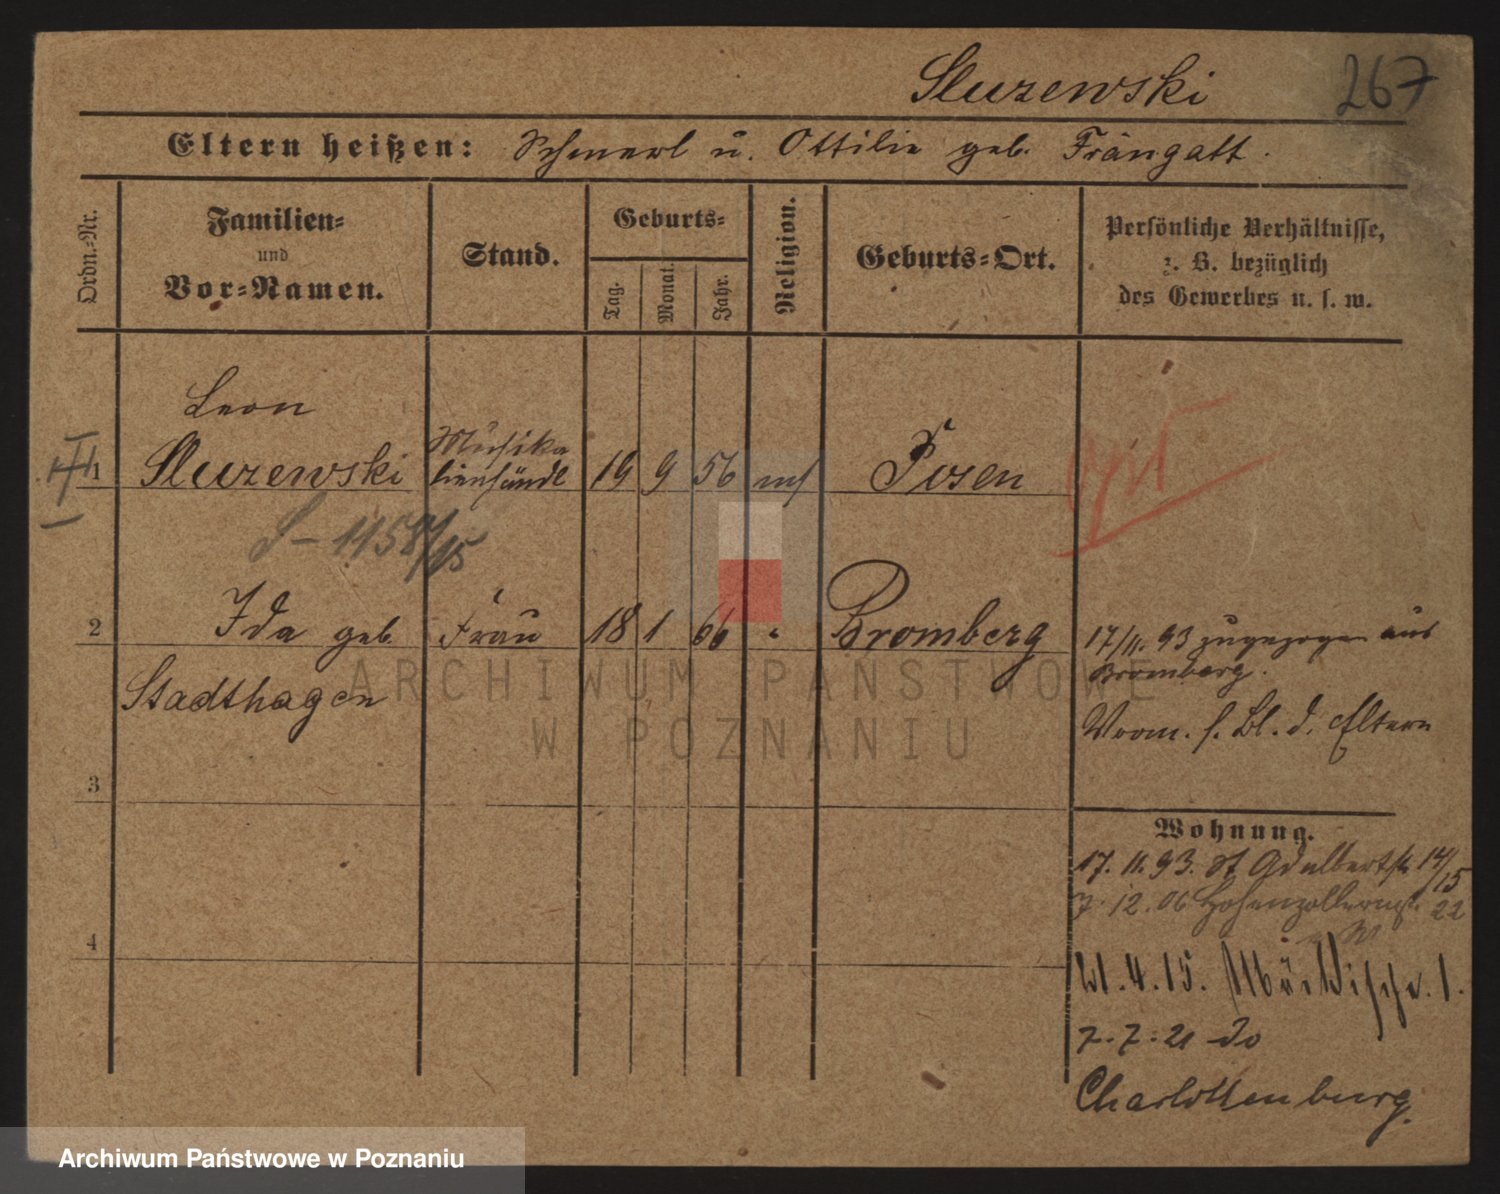 Sluzewski
267
Eltern heißen: Schmerl u. Ottilie geb. Frängatt.
Ordn.-Nr.
Familien-
und
Vor-Namen.
Stand.
Geburts-
Tag.
Monat.
Jahr.
Religion.
Geburts-Ort.
Persönliche Verhältnisse,
z. B. bezüglich
des Gewerbes u. s. w.
Leon
1 Sluzewski Musika
lienhändl 19 9 56 mos Posen
S-1158/15
2 Ida geb. Frau 18 1 66 " Bromberg 17/11.93 zugezogen aus
Stadthagen Bromberg.
s. Bl. d. Eltern
3
Wohnung.
17. 11. 93. St Adalbertstr 14/15
7. 12. 06 Hohenzollernstr. 22
4
21.4.15. 1.
7.7.21 do
Charlottenburg.
ARCHIWUM PAŃSTWOWE
W POZNANIU
Archiwum Państwowe w Poznaniu